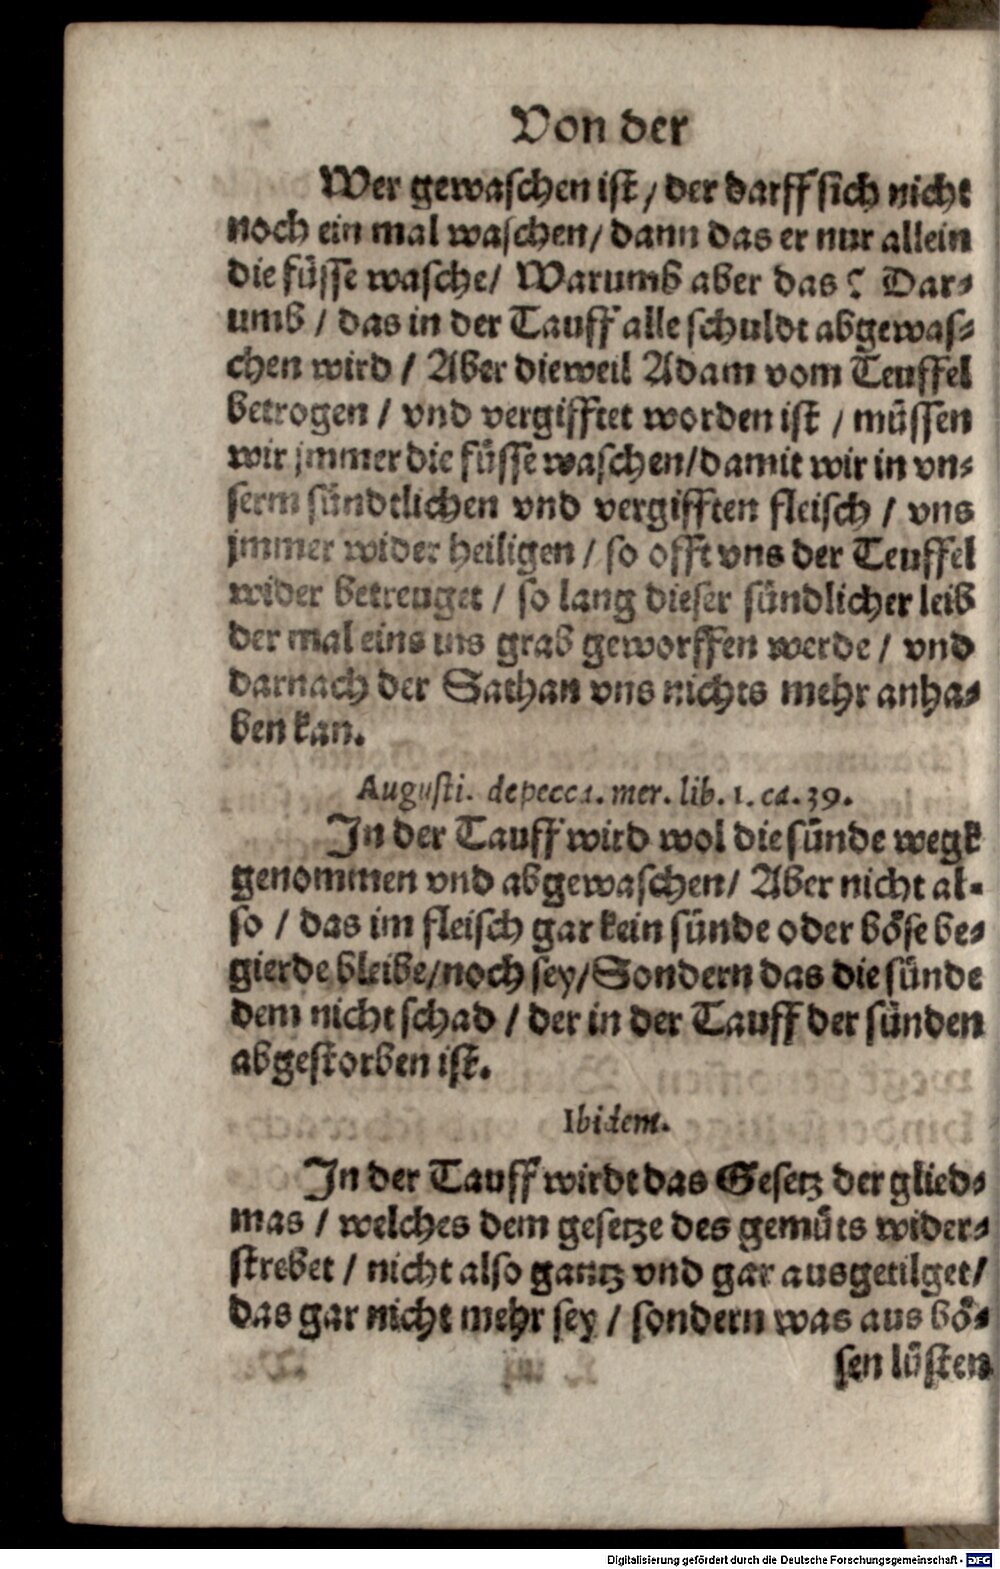 Von der
Wer gewaſchen iſt / der darff ſich nicht
noch ein mal waſchen / dann das er nur allein
die füſſe waſche / Warumb aber das? Dar-
umb / das in der Tauff alle ſchuldt abgewaſ-
chen wird / Aber dieweil Adam vom Teuffel
betrogen / vnd vergifftet worden iſt / müſſen
wir jmmer die füſſe waſchen / damit wir in vn-
ſerm ſündtlichen vnd vergifften fleiſch / vns
jmmer wider heiligen / ſo offt vns der Teuffel
wider betreuget / ſo lang dieſer ſündlicher leib
der mal eins ins grab geworffen werde / vnd
darnach der Sathan vns nichts mehr anha-
ben kan.
Auguſti. de pecca. mer. lib. 1. ca. 39.
In der Tauff wird wol die ſünde wegk
genommen vnd abgewaſchen / Aber nicht al-
ſo / das im fleiſch gar kein ſünde oder böſe be-
gierde bleibe / noch ſey / Sondern das die ſünde
dem nicht ſchad / der in der Tauff der ſünden
abgeſtorben iſt.
Ibidem.
In der Tauff wirdt das Geſetz der glied-
mas / welches dem geſetze des gemüts wider-
ſtrebet / nicht alſo gantz vnd gar ausgetilget /
das gar nicht mehr ſey / ſondern was aus bö-
ſen lüſten
Digitalisierung gefördert durch die Deutsche Forschungsgemeinschaft - DFG